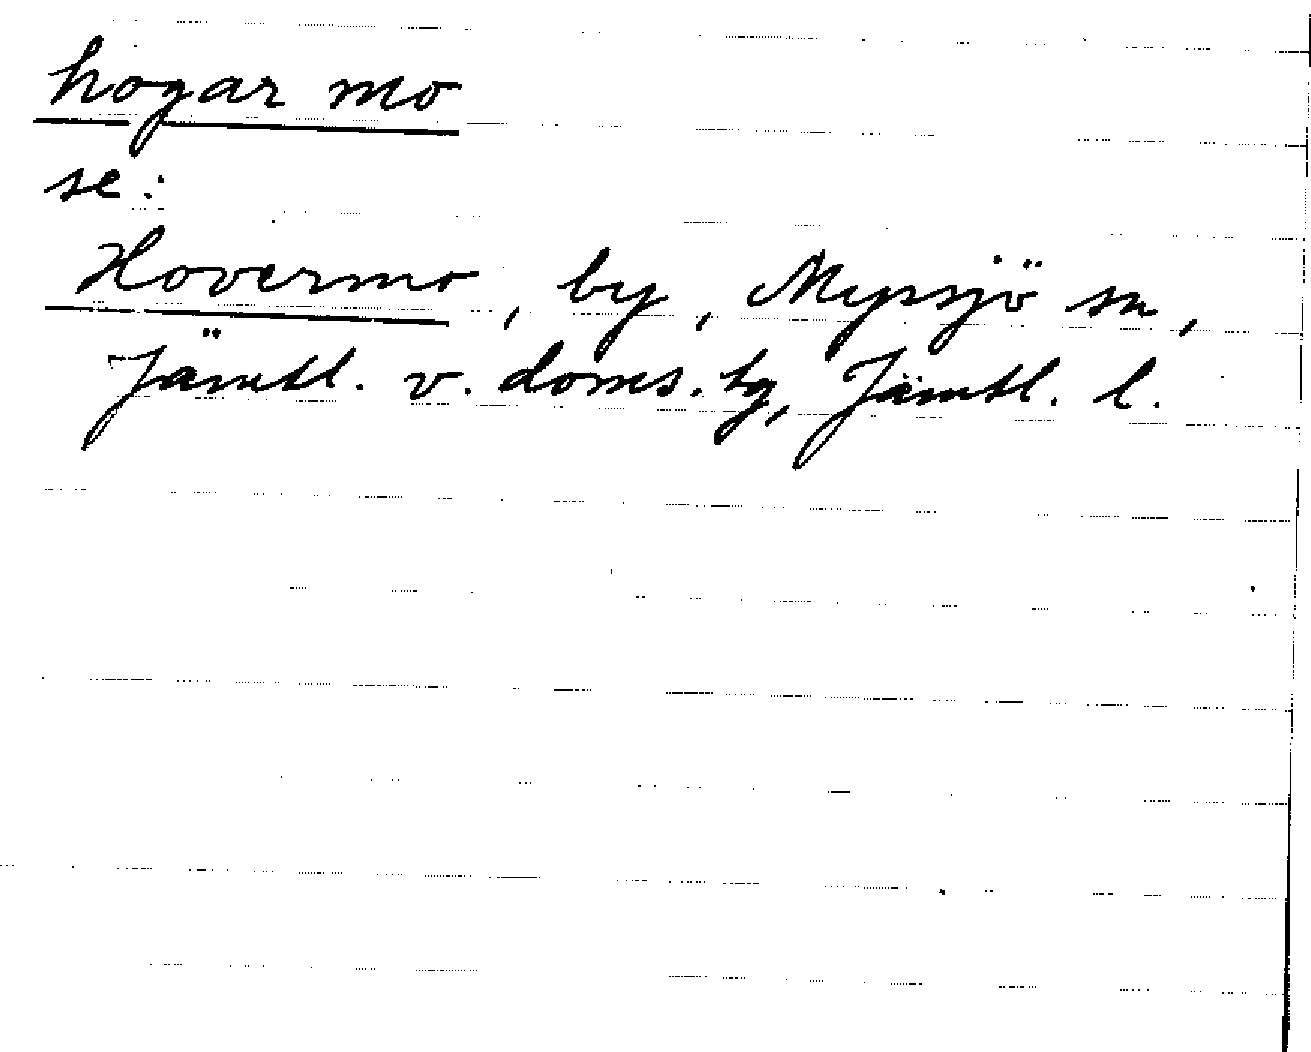 hogar mo
se:
Hovermo, by, Myrsjö sn,
Jämtl. v. doms. tg, Jämtl. l.